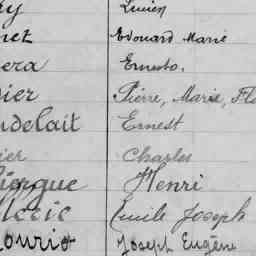 Lucien
Edouard Marie
Ernesto.
Pierre, Marie, Flo
delait Ernest
ier Charles
Henri
Emile Joseph
ourio Joseph Eugène